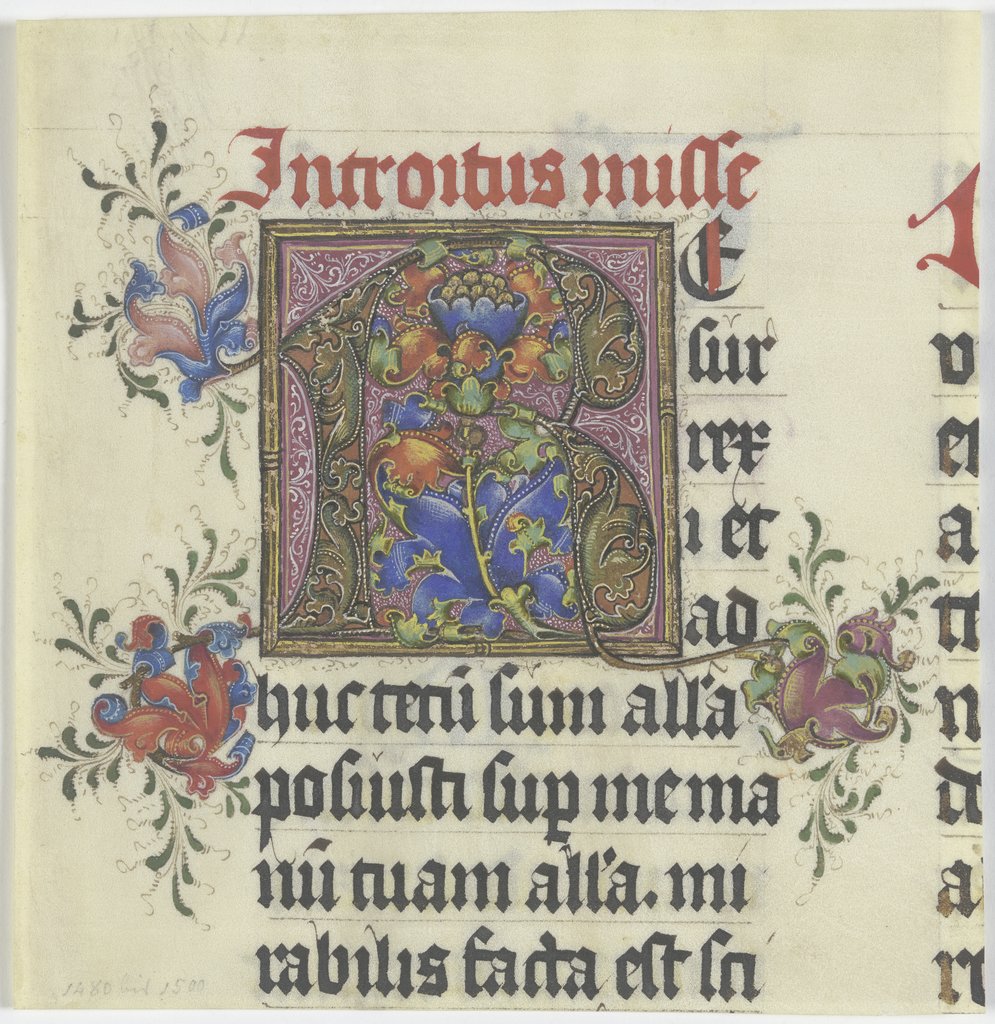 Introitus misse
RE
sur
rex
i et
ad
huc tecū sum all'a
posuisti sup me ma
nū tuam all'a. mi
rabilis facta est sci
1480 bis 1500